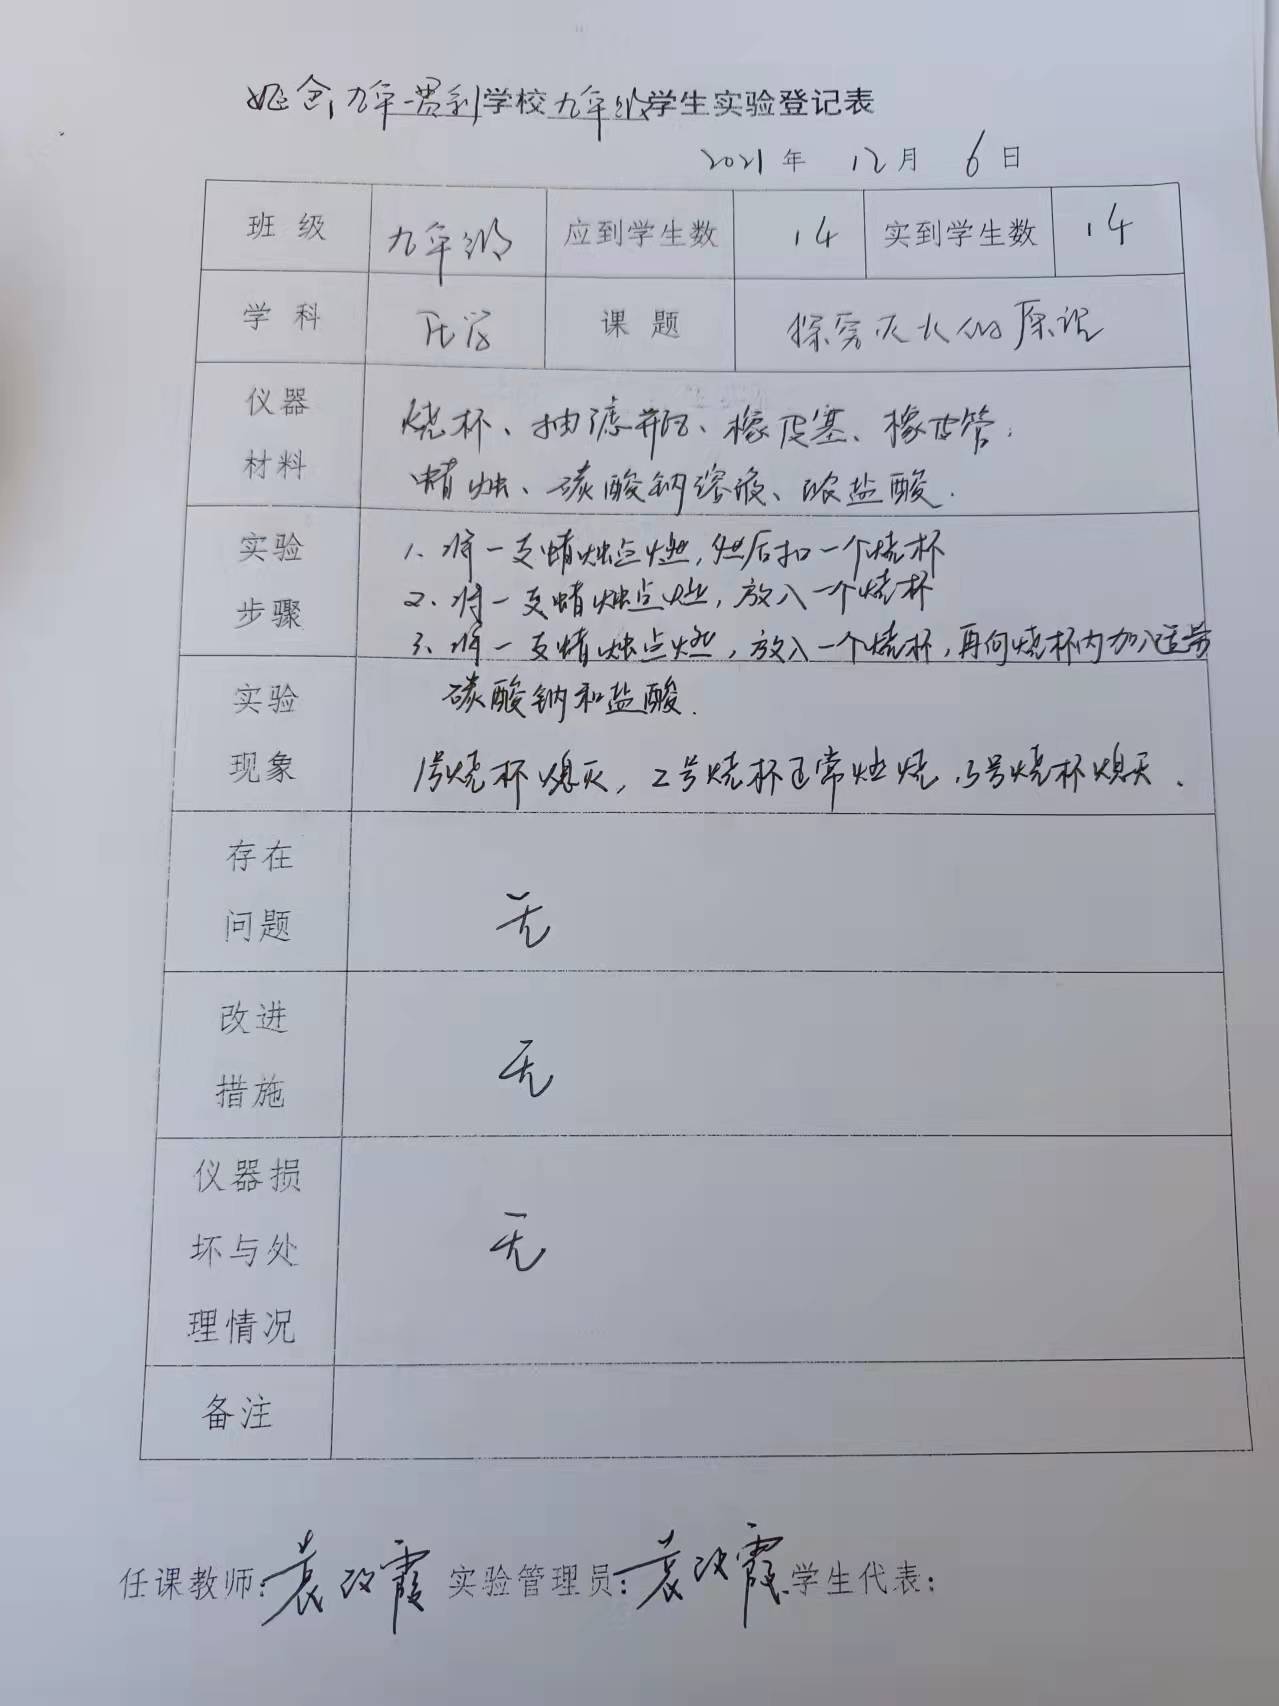 九年一贯制学校九年级学生实验登记表
2021年 12月 6日
班 级 九年级 应到学生数 14 实到学生数 14
学 科 化学 课 题 探究灭火的原理
仪器
材料
烧杯、抽滤瓶、橡皮塞、橡皮管、
蜡烛、碳酸钠溶液、浓盐酸.
实验
步骤
1、将一支蜡烛点燃,然后扣一个烧杯
2、将一支蜡烛点燃,放入一个烧杯
3、将一支蜡烛点燃,放入一个烧杯,再向烧杯内加入适量
碳酸钠和盐酸.
实验
现象
1号烧杯熄灭,2号烧杯正常燃烧.3号烧杯熄灭.
存在
问题
无
改进
措施
无
仪器损
坏与处
理情况
无
备注
任课教师:袁改霞 实验管理员:袁改霞 学生代表: